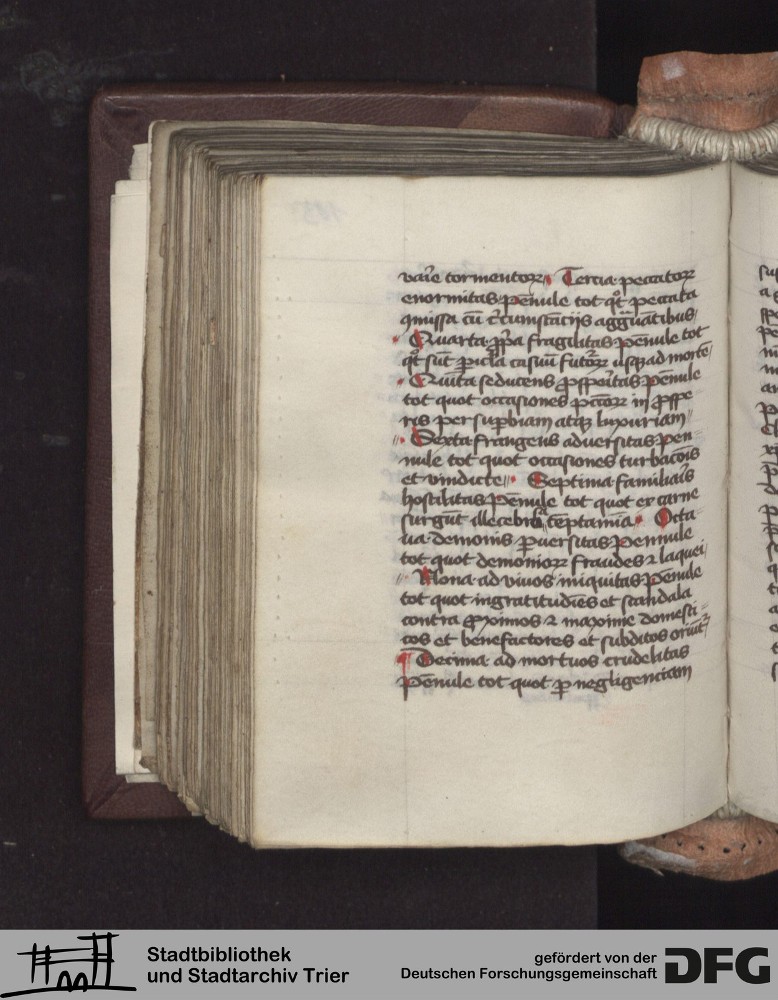 varie tormentorꝝ Tercia peccatorꝝ
enormitas Penule tot qͦt peccata
ꝯmissa cū circumstācijs aggᵃuātibus
Quarta ꝓpa fragilitas penule tot
qͦt sūt ꝑicla casuū futorꝝ usqꝫ ad mortē
Quīta seducens ꝓspitas penule
tot quot occasiones pctōrꝝ in ꝓspe
ris per supbiam atqꝫ luxuriam
Sexta frangens adversitas pen
nule tot quot occasiones turbacōis
et vindicte Septima familiaris
hostilitas Pennule tot quot ex carne
surgūt illecebris tēptamīa Octa
ua demonis ꝑuersitas pennule
tot quot demoniorꝝ fraudes ⁊ laquei
Nona ad viuos iniquitas penule
tot quot ingratitudīes et scandala
contra ꝓximos ⁊ maxime domesti
cos et benefactores et subditos oriūtᷣ
Decima ad mortuos crudelitas
Penule tot quot ꝑ negligenciam
Stadtbibliothek
und Stadtarchiv Trier
gefördert von der
Deutschen Forschungsgemeinschaft
DFG